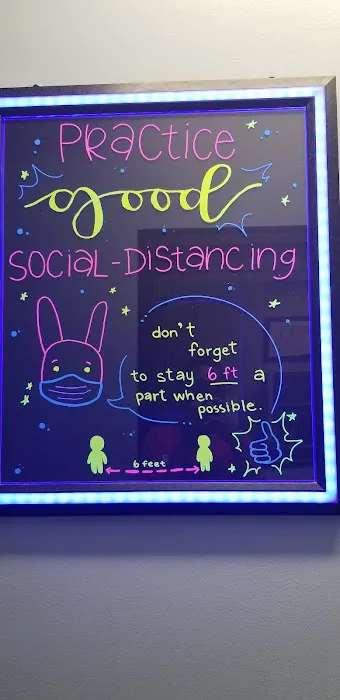 Practice
good
Social-Distancing
don't
forget
to stay 6 ft a
part when
possible.
6 feet